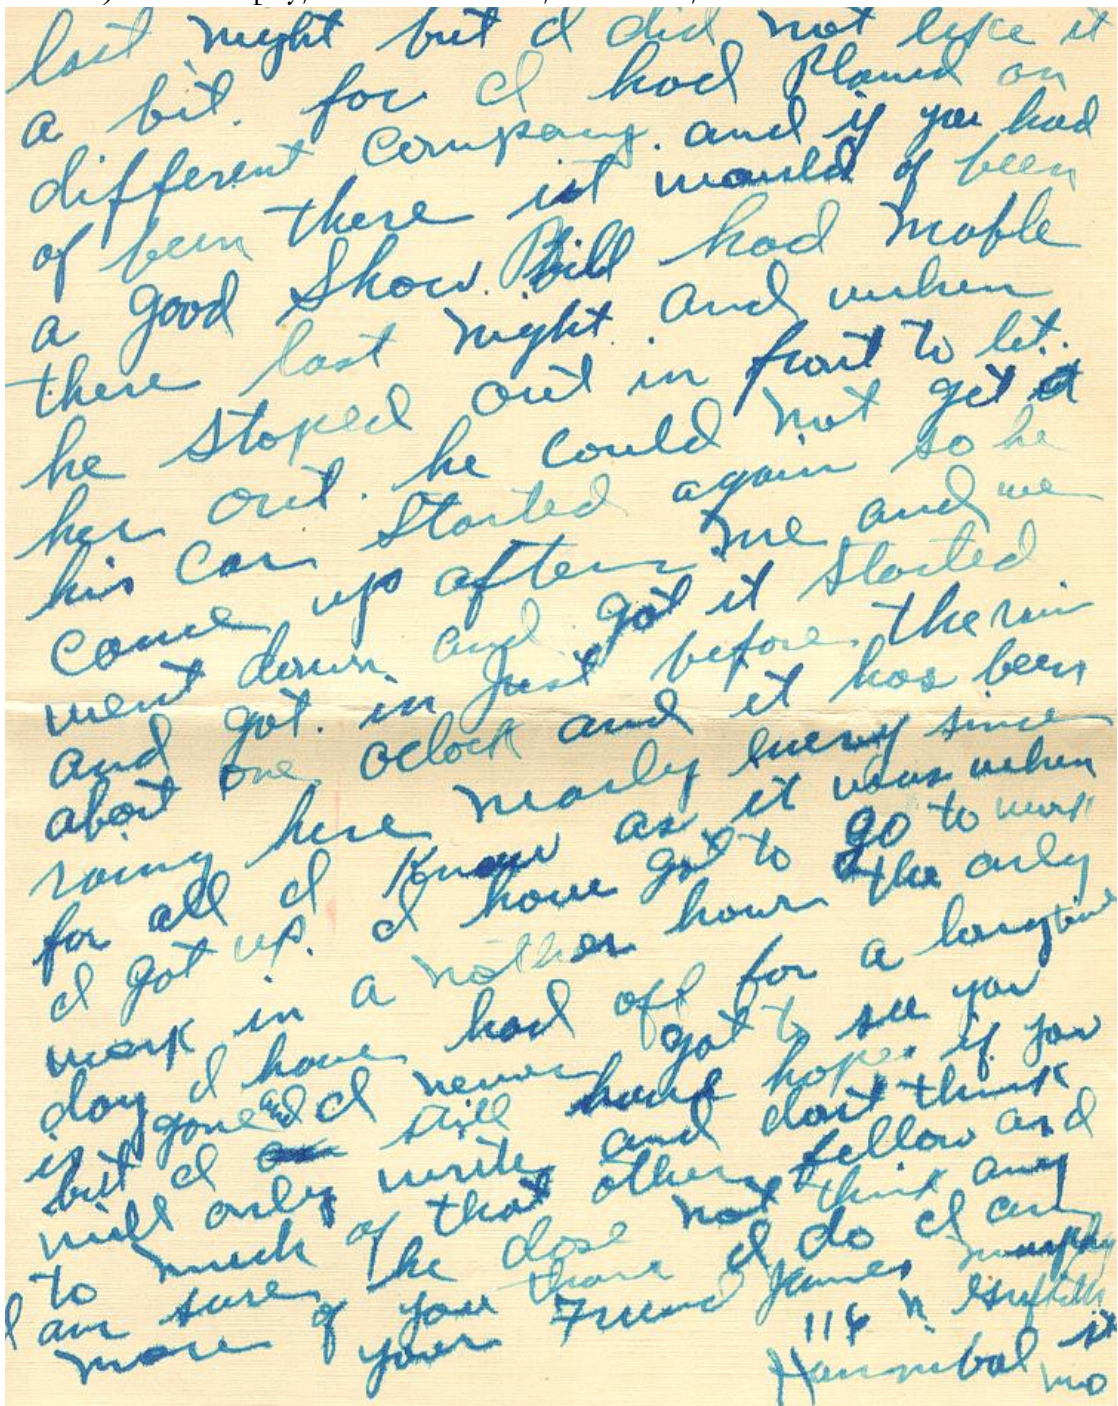 last night but I did not like it
a bit. for I had Planed on
different company. and if you had
of been there it would of been
a good Show. Bill had Mable
there last night and when
he stoped out in front to let.
her out. he could not get
his car started again so he
come up after me and we
went down and got it started
and got in just before the rain
about one oclock and it has been
raing here nearly every since
for all I Know as it was when
I got up. I have got to go to work
work in a nother hour the only
day I have had off for a long time
is gone and I never got to see you
but I still have hopes if you
will only write and dont think
to much of that other fellow and
I am sure he dose not think any
more of you than I do I am
your Friend James Murphy
116 n. Griffith st
Hannibal mo